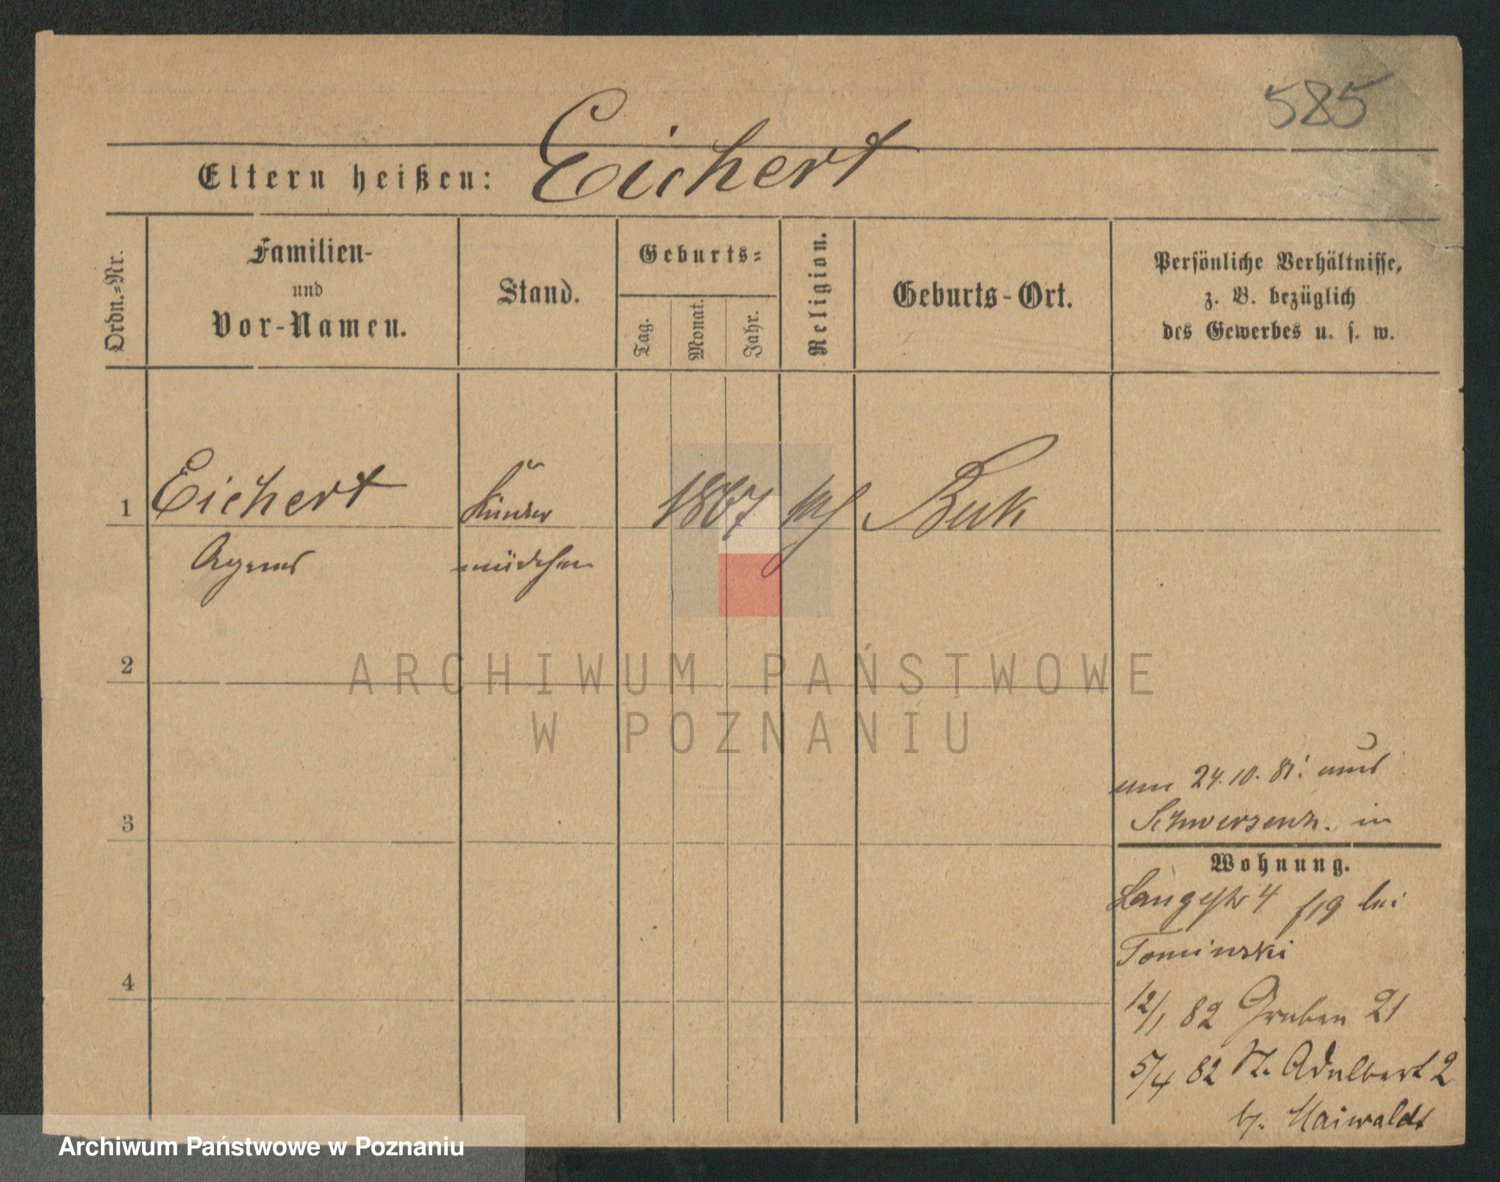 585
Eltern heißen: Eichert
Ordn.-Nr.
Familien-
und
Vor-Namen.
Stand.
Geburts-
Tag.
Monat.
Jahr.
Religion.
Geburts-Ort.
Persönliche Verhältnisse,
z. B. bezüglich
des Gewerbes u. s. w.
1
Eichert
Kinder
1867
Buk
mädchen
2
ARCHIWUM PAŃSTWOWE
W POZNANIU
3
am 24.10.81. aus
Schwersenz. in
Wohnung.
Langestr 4 bei
Tominski
4
12/1 82 Graben 21
5/4 82 St. Adalbert 2
b. Maiwaldt
Archiwum Państwowe w Poznaniu